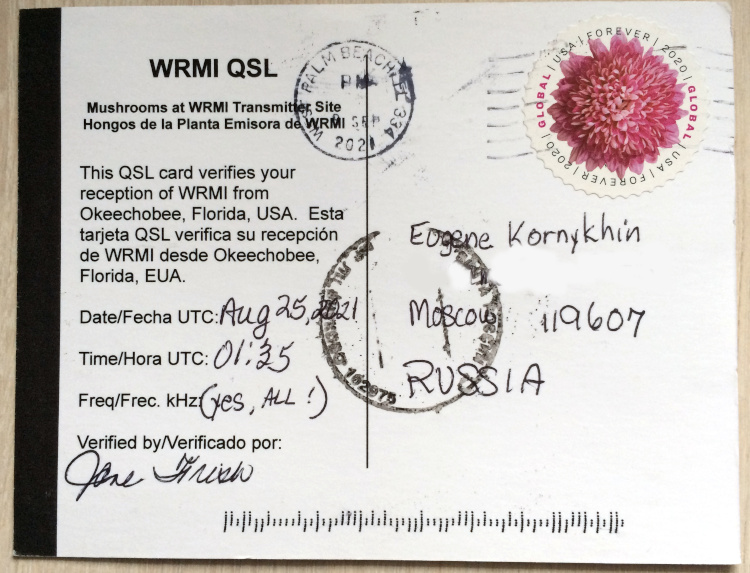 WRMI QSL
Mushrooms at WRMI Transmitter Site
Hongos de la Planta Emisora de WRMI
This QSL card verifies your
reception of WRMI from
Okeechobee, Florida, USA. Esta
tarjeta QSL verifica su recepción
de WRMI desde Okeechobee,
Florida, EUA.
Date/Fecha UTC: Aug 25, 2021
Time/Hora UTC: 01:35
Freq/Frec. kHz: (yes, ALL!)
Verified by/Verificado por:
Jane
WEST PALM BEACH, FL 334
PM
SEP
2021
GLOBAL | USA | FOREVER | 2020 | GLOBAL | USA | FOREVER | 2020 |
Eugene Kornykhin
Moscow 119607
RUSSIA
102975